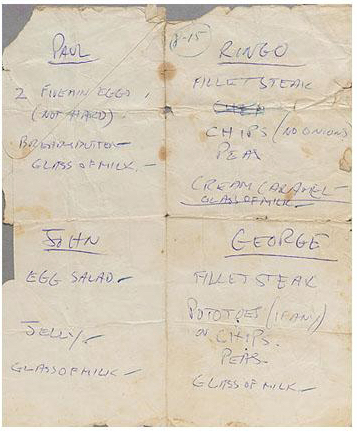 PAUL
2 FIVEMIN EGGS.
(NOT HARD).
BREAD+BUTTER
GLASS OF MILK.
RINGO
FILLET STEAK
CHIPS (NO ONIONS)
PEAS
CREAM CARAMEL
GLASS OF MILK.
JOHN
EGG SALAD
JELLY
GLASS OF MILK
GEORGE
FILLET STEAK
POTOTOES (IF ANY)
OR CHIPS.
PEAS.
GLASS OF MILK